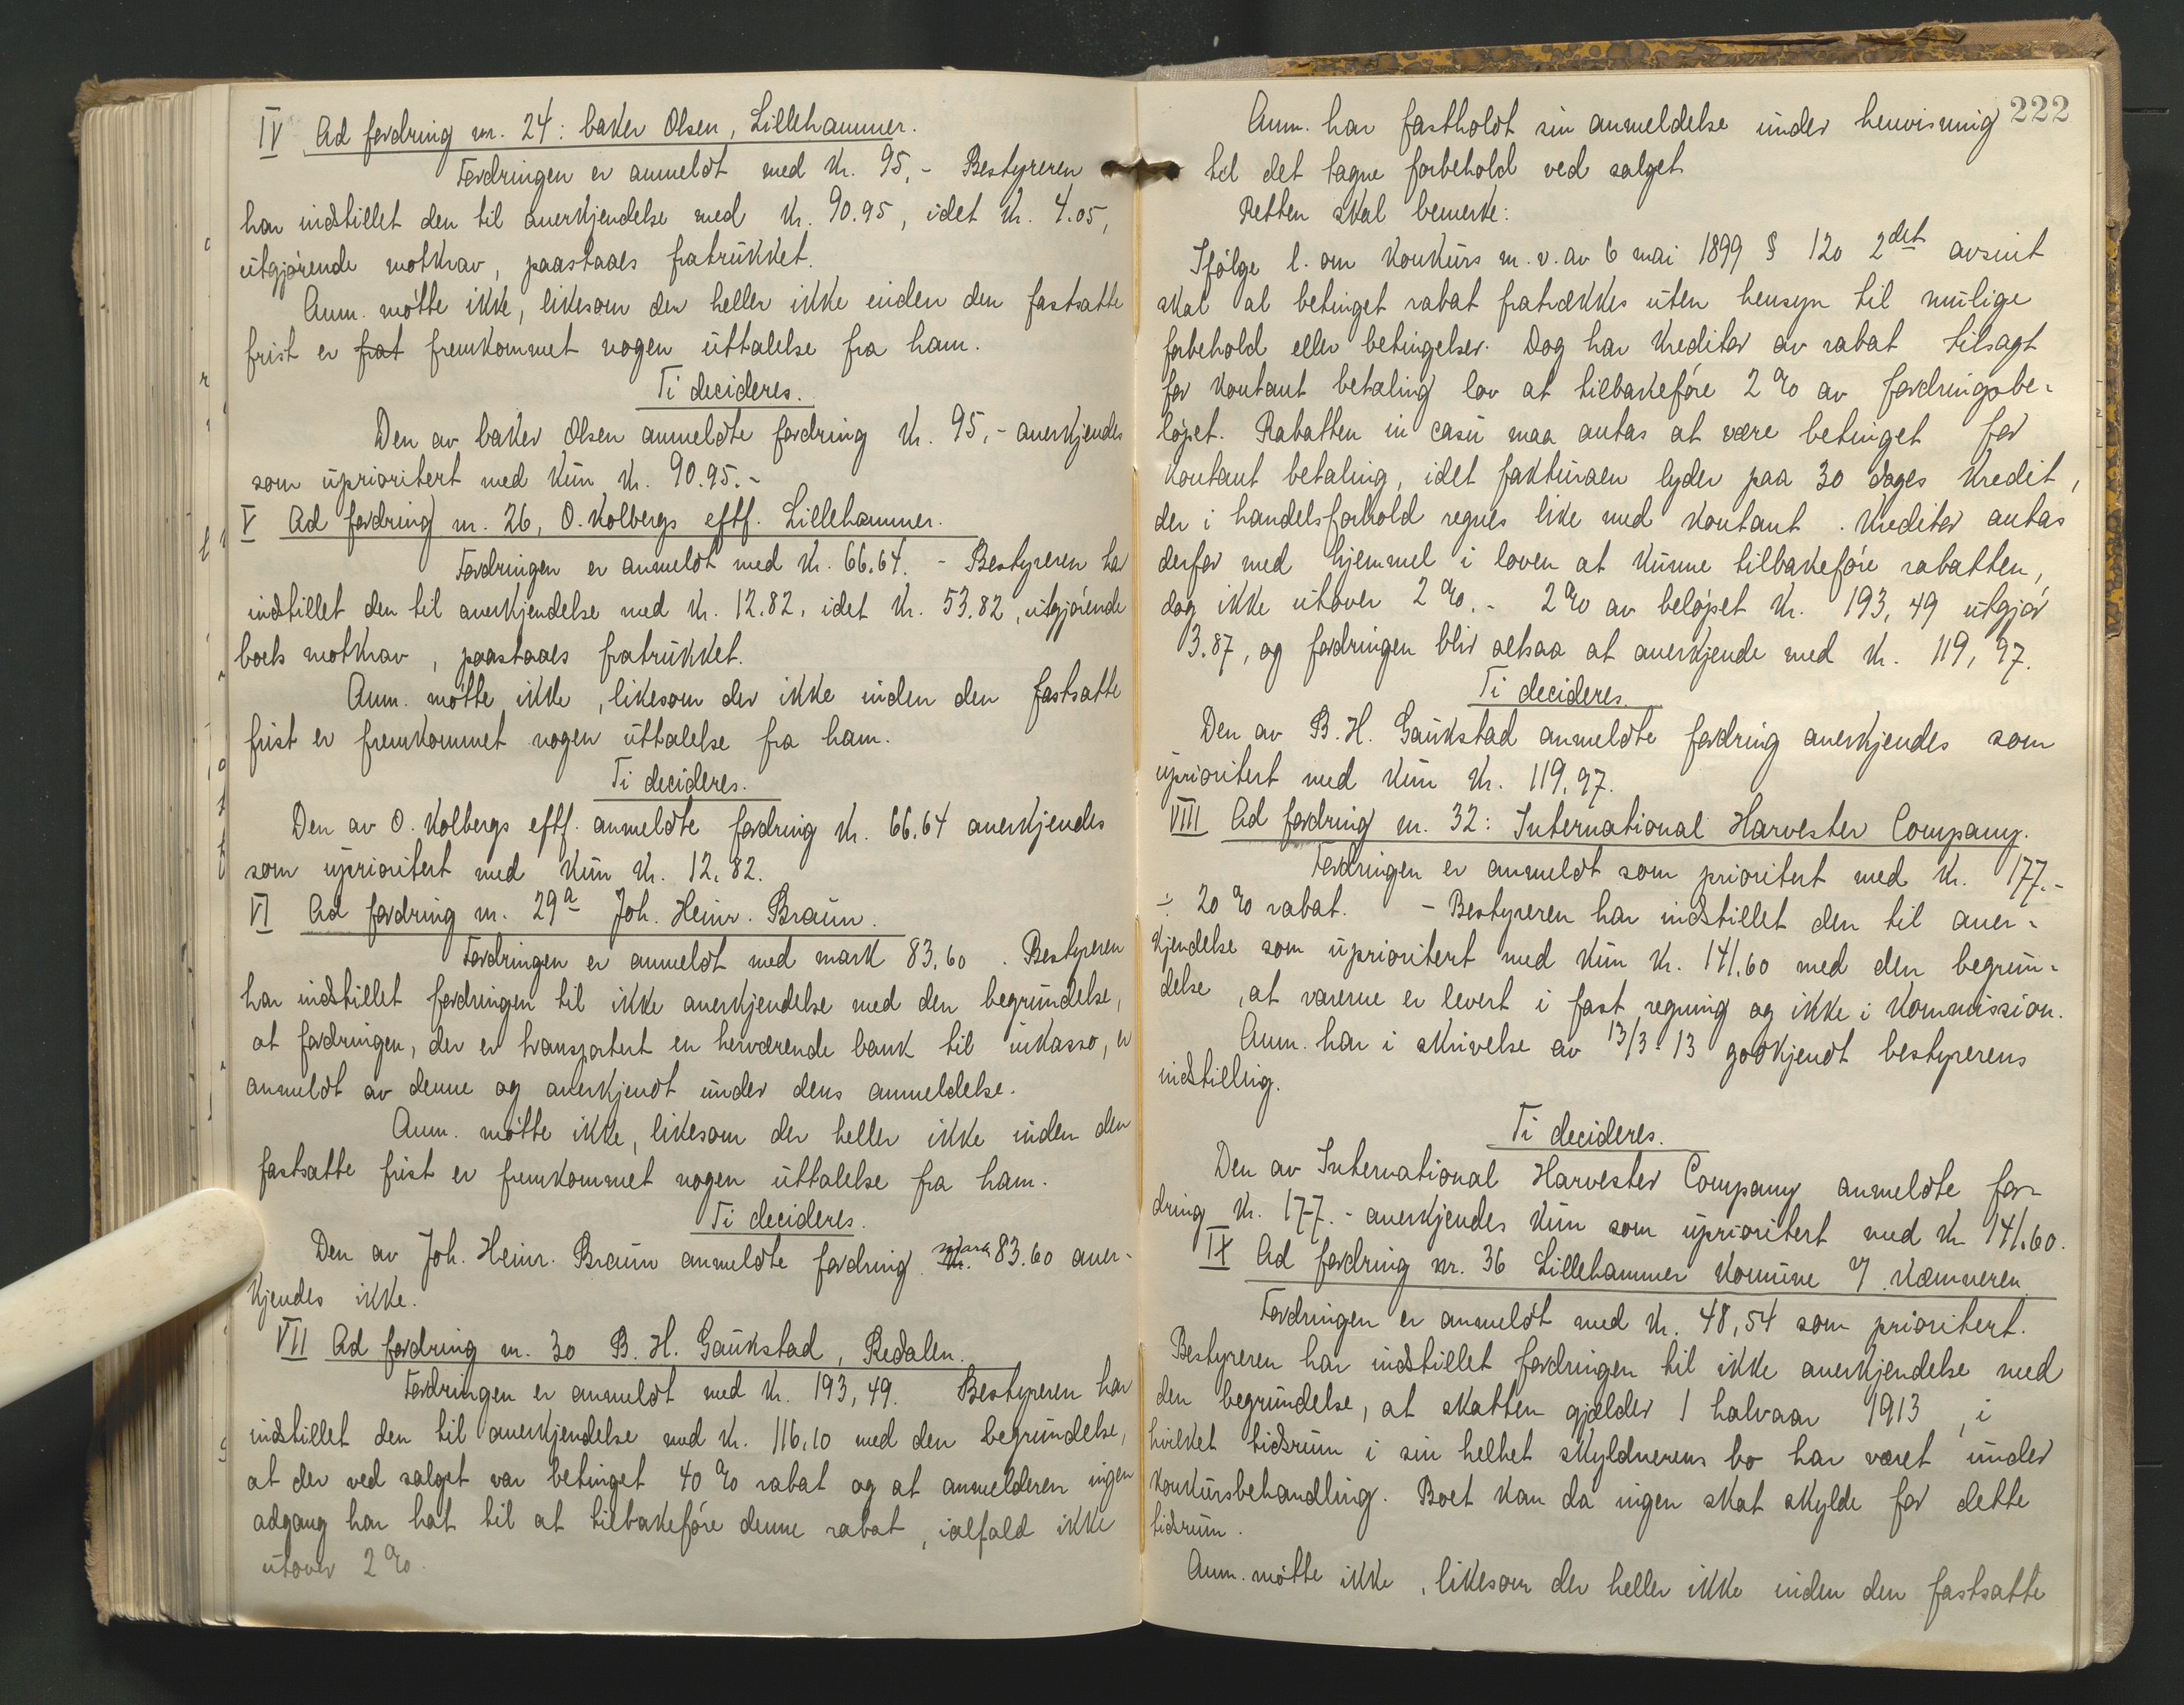 IV Ad fordring nr. 24: baker Olsen, Lillehammer.
Fordringen er anmeldt med kr. 95,- Bestyreren
har indstillet den til anerkjendelse med kr. 90.95, idet kr. 4.05,
utgjørende motkrav, paastaaes fratrukket.
Anm. møtte ikke, likesom der heller ikke inden den fastsatte
frist er frat fremkommet nogen uttalelse fra ham.
Ti decideres.
Den av baker Olsen anmeldte fordring kr. 95,- anerkjendes
som uprioritert med kun kr. 90.95.-
V Ad fordring nr. 26, O. Kolbergs eftf. Lillehammer.
Fordringen er anmeldt med kr. 66.64. - Bestyreren har
indstillet den til anerkjendelse med kr. 12.82, idet kr. 53.82, utgjørende
boets motkrav, paastaaes fratrukket.
Anm. møtte ikke, likesom der ikke inden den fastsatte
frist er fremkommet nogen uttalelse fra ham.
Ti decideres.
Den av O. Kolbergs eftf. anmeldte fordring kr. 66.64 anerkjendes
som uprioritert med kun kr. 12.82.
VI Ad fordring nr. 29a Joh. Heinr. Braun.
Fordringen er anmeldt med mark 83.60. Bestyreren
har indstillet fordringen til ikke anerkjendelse med den begrundelse,
at fordringen, der er transportert en herværende bank til inkasso, er
anmeldt av denne og anerkjendt under dens anmeldelse.
Anm. møtte ikke, likesom der heller ikke inden den
fastsatte frist er fremkommet nogen uttalelse fra ham.
Ti decideres.
Den av Joh. Heinr. Braun anmeldte fordring kr. mark 83.60 aner-
kjendes ikke.
VII Ad fordring nr. 30 B. H. Gaukstad, Redalen.
Fordringen er anmeldt med kr. 193,49. Bestyreren har
indstillet den til anerkjendelse med kr. 116.10 med den begrundelse,
at der ved salget var betinget 40 % rabat og at anmelderen ingen
adgang har hat til at tilbakeføre denne rabat, ialfald ikke
utover 2 %.
222
Anm. har fastholdt sin anmeldelse under henvisning
til det tagne forbehold ved salget.
Retten skal bemerke:
Ifølge l. om konkurs m. v. av 6 mai 1899 § 120 2det avsnit
skal al betinget rabat fratrækkes uten hensyn til mulige
forbehold eller betingelser. Dog har kreditor av rabat tilsagt
for kontant betaling lov at tilbakeføre 2 % av fordringsbe-
løpet. Rabatten in casu maa antas at være betinget for
kontant betaling, idet fakturaen lyder paa 30 dages kredit,
der i handelsforhold regnes like med kontant. Kreditor antas
derfor med hjemmel i loven at kunne tilbakeføre rabatten,
dog ikke utover 2 %. - 2 % av beløpet kr. 193,49 utgjør
3.87, og fordringen blir altsaa at anerkjende med kr. 119,97.
Ti decideres.
Den av B. H. Gaukstad anmeldte fordring anerkjendes som
uprioritert med kun kr. 119.97.
VIII Ad fordring nr. 32: International Harvester Company.
Fordringen er anmeldt som prioritert med kr. 177.-
÷ 20 % rabat. - Bestyreren har indstillet den til aner-
kjendelse som uprioritert med kun kr. 141.60 med den begrun-
delse, at varerne er levert i fast regning og ikke i kommission.
Anm. har i skrivelse av 13/3-13 godkjendt bestyrerens
indstilling.
Ti decideres.
Den av International Harvester Company anmeldte for-
dring kr. 177.- anerkjendes kun som uprioritert med kr 141.60.
IX Ad fordring nr. 36 Lillehammer komune v/ kæmneren.
Fordringen er anmeldt med kr. 48,54 som prioritert.
Bestyreren har indstillet fordringen til ikke anerkjendelse med
den begrundelse, at skatten gjælder 1 halvaar 1913, i
hvilket tidsrum i sin helhet skyldnerens bo har været under
konkursbehandling. Boet kan da ingen skat skylde for dette
tidsrum.
Anm. møtte ikke, likesom der heller ikke inden den fastsatte